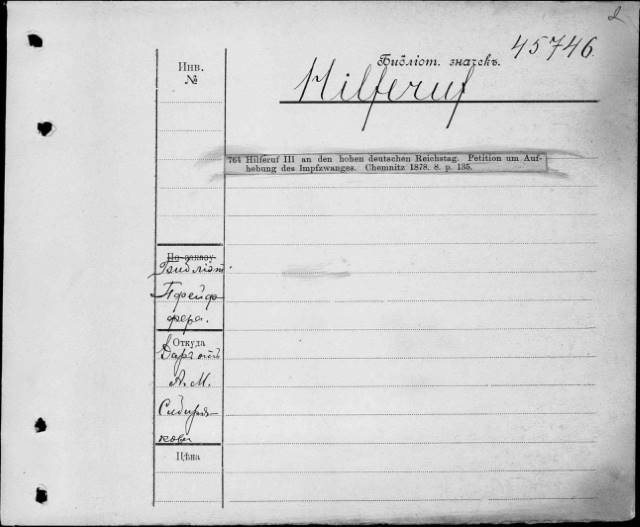 2
45746
Инв.
№
Библіот. значекъ.
Hilferuf
764 Hilferuf III an den hohen deutschen Reichstag. Petition um Auf-
hebung des Impfzwanges. Chemnitz 1878. 8. p. 135.
По заказу
Библіот.
Пфейф
фера.
Откуда
Даръ отъ
А. М.
Сибиря-
кова
Цѣна